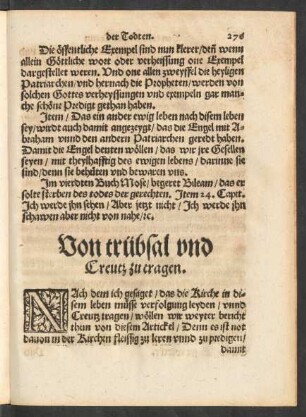 der Todten. 276
Die öffentliche Exempel sind nun klerer/deñ wenn
allein Göttliche wort oder verheissung one Exempel
dargestellet weren. Und one allen zweyffel die heyligen
Patriarchen vnd hernach die Propheten/werden von
solchen Gottes verheyssungen vnd exempeln gar man-
che schöne Predigt gethan haben.
Item/Das ein ander ewig leben nach disem leben
sey/wirdt auch damit angezeygt/das die Engel mit A-
braham vnnd den andern Patriarchen geredt haben.
Damit die Engel deuten wöllen/das wir jre Gesellen
seyen/mit theylhafftig des ewigen lebens/darinne sie
sind/denn sie behüten vnd bewaren vns.
Im vierdten Buch Mose/begeret Bileam/das er
solte sterben des todes der gerechten. Item 24. Capit.
Ich werde jhn sehen/Aber jetzt nicht/Ich werde jhn
schawen aber nicht von nahe/ꝛc.
Von trübsal vnd
Creutz zu tragen.
NAch dem ich gesaget/das die Kirche in di-
sem leben müsse verfolgung leyden/vnnd
Creutz tragen/wöllen wir weyter bericht
thun von disem Artickel/Denn es ist not
dauon in der Kirchen fleissig zu leren vnnd zu predigen/
damit